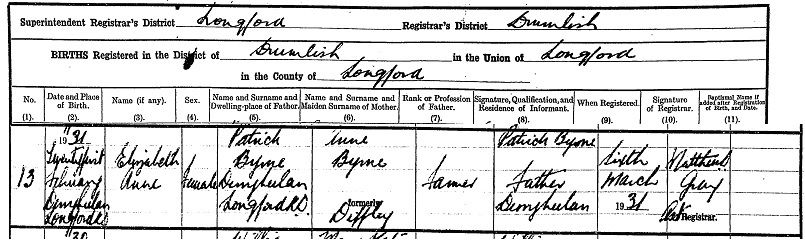 Superintendent Registrar's District Longford Registrar's District Drumlish
BIRTHS Registered in the District of Drumlish in the Union of Longford
in the County of Longford
No. Date and Place of Birth. Name (if any). Sex. Name and Surname and Dwelling-place of Father. Name and Surname and Maiden Surname of Mother. Rank or Profession of Father. Signature, Qualification, and Residence of Informant. When Registered. Signature of Registrar. Baptismal Name if added after Registration of Birth, and Date.
(1). (2). (3). (4). (5). (6). (7). (8). (9). (10). (11).
1931 Patrick Anne Patrick Byrne
Twenty first Elizabeth Byrne Byrne Sixth Matthew
13 February Anne Female Farmer Father March Gray
Longford R.D. Longford R.D. formerly 1931 Registrar.
Diffley